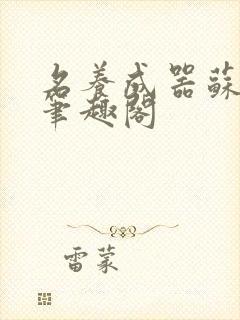 名養成器蘇
筆趣閣
雷蒙